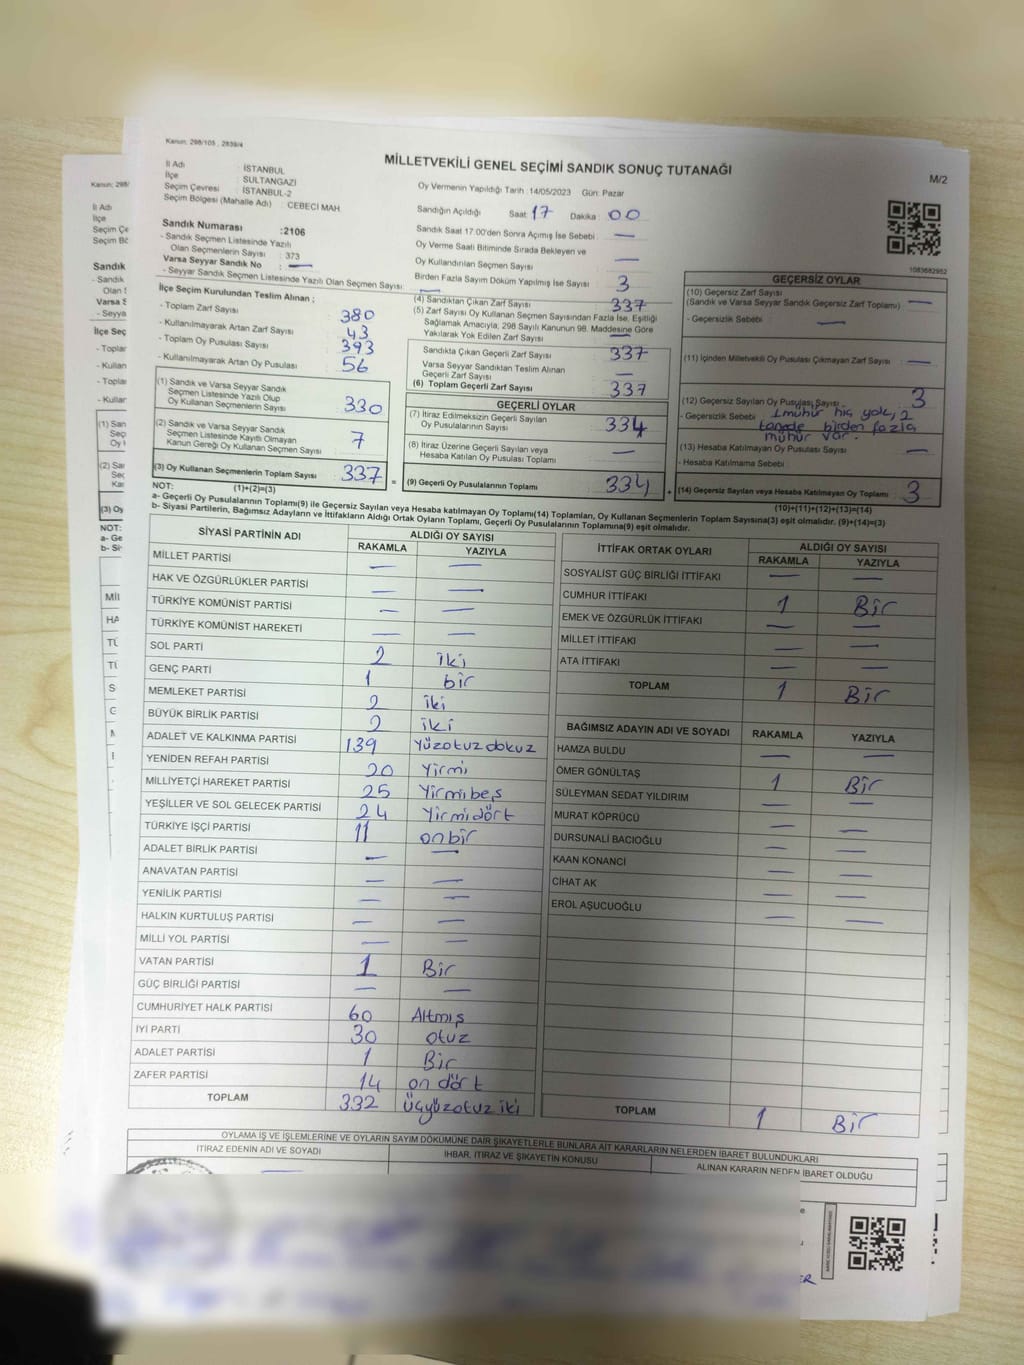 Kanun: 298/105 , 2839/4
MİLLETVEKİLİ GENEL SEÇİMİ SANDIK SONUÇ TUTANAĞI
M/2
İl Adı İSTANBUL
İlçe SULTANGAZİ
Seçim Çevresi İSTANBUL-2
Seçim Bölgesi (Mahalle Adı) : CEBECİ MAH.
Sandık Numarası :2106
- Sandık Seçmen Listesinde Yazılı
Olan Seçmenlerin Sayısı : 373
Varsa Seyyar Sandık No : —
- Seyyar Sandık Seçmen Listesinde Yazılı Olan Seçmen Sayısı: —
Oy Vermenin Yapıldığı Tarih :14/05/2023 Gün: Pazar
Sandığın Açıldığı Saat 17 Dakika 00
Sandık Saat 17:00'den Sonra Açımış İse Sebebi : —
Oy Verme Saati Bitiminde Sırada Bekleyen ve
Oy Kullandırılan Seçmen Sayısı —
Birden Fazla Sayım Döküm Yapılmış İse Sayısı 3
1083682952
İlçe Seçim Kurulundan Teslim Alınan ;
- Toplam Zarf Sayısı 380
- Kullanılmayarak Artan Zarf Sayısı 43
- Toplam Oy Pusulası Sayısı 393
- Kullanılmayarak Artan Oy Pusulası 56
(1) Sandık ve Varsa Seyyar Sandık
Seçmen Listesinde Yazılı Olup
Oy Kullanan Seçmenlerin Sayısı 330
(2) Sandık ve Varsa Seyyar Sandık
Seçmen Listesinde Kayıtlı Olmayan
Kanun Gereği Oy Kullanan Seçmen Sayısı 7
(3) Oy Kullanan Seçmenlerin Toplam Sayısı 337
(1)+(2)=(3)
(4) Sandıktan Çıkan Zarf Sayısı 337
(5) Zarf Sayısı Oy Kullanan Seçmen Sayısından Fazla İse, Eşitliği
Sağlamak Amacıyla, 298 Sayılı Kanunun 98. Maddesine Göre
Yakılarak Yok Edilen Zarf Sayısı —
Sandıkta Çıkan Geçerli Zarf Sayısı 337
Varsa Seyyar Sandıktan Teslim Alınan
Geçerli Zarf Sayısı —
(6) Toplam Geçerli Zarf Sayısı 337
GEÇERLİ OYLAR
(7) İtiraz Edilmeksizin Geçerli Sayılan
Oy Pusulasının Sayısı 334
(8) İtiraz Üzerine Geçerli Sayılan veya
Hesaba Katılan Oy Pusulası Toplamı —
= (9) Geçerli Oy Pusulalarının Toplamı 334
GEÇERSİZ OYLAR
(10) Geçersiz Zarf Sayısı
(Sandık ve Varsa Seyyar Sandık Geçersiz Zarf Toplamı) —
- Geçersizlik Sebebi : —
(11) İçinden Milletvekili Oy Pusulası Çıkmayan Zarf Sayısı —
(12) Geçersiz Sayılan Oy Pusulası Sayısı 3
- Geçersizlik Sebebi : 1 mühür hiç yok, 2
tanede birden fazla
mühür var.
(13) Hesaba Katılmayan Oy Pusulası Sayısı —
- Hesaba Katılmama Sebebi :
+ (14) Geçersiz Sayılan veya Hesaba Katılmayan Oy Toplamı 3
(10)+(11)+(12)+(13)=(14)
NOT:
a- Geçerli Oy Pusulalarının Toplamı(9) ile Geçersiz Sayılan veya Hesaba katılmayan Oy Toplamı(14) Toplamları, Oy Kullanan Seçmenlerin Toplam Sayısına(3) eşit olmalıdır. (9)+(14)=(3)
b- Siyasi Partilerin, Bağımsız Adayların ve İttifakların Aldığı Ortak Oyların Toplamı, Geçerli Oy Pusulalarının Toplamına(9) eşit olmalıdır.
SİYASİ PARTİNİN ADI ALDIĞI OY SAYISI
RAKAMLA YAZIYLA
MİLLET PARTİSİ — —
HAK VE ÖZGÜRLÜKLER PARTİSİ — —
TÜRKİYE KOMÜNİST PARTİSİ — —
TÜRKİYE KOMÜNİST HAREKETİ — —
SOL PARTİ 2 iki
GENÇ PARTİ 1 bir
MEMLEKET PARTİSİ 2 iki
BÜYÜK BİRLİK PARTİSİ 2 iki
ADALET VE KALKINMA PARTİSİ 139 Yüzotuzdokuz
YENİDEN REFAH PARTİSİ 20 Yirmi
MİLLİYETÇİ HAREKET PARTİSİ 25 Yirmibeş
YEŞİLLER VE SOL GELECEK PARTİSİ 24 Yirmidört
TÜRKİYE İŞÇİ PARTİSİ 11 onbir
ADALET BİRLİK PARTİSİ — —
ANAVATAN PARTİSİ — —
YENİLİK PARTİSİ — —
HALKIN KURTULUŞ PARTİSİ — —
MİLLİ YOL PARTİSİ — —
VATAN PARTİSİ 1 Bir
GÜÇ BİRLİĞİ PARTİSİ — —
CUMHURİYET HALK PARTİSİ 60 Altmış
İYİ PARTİ 30 otuz
ADALET PARTİSİ 1 Bir
ZAFER PARTİSİ 14 on dört
TOPLAM 332 üçyüzotuz iki
İTTİFAK ORTAK OYLARI ALDIĞI OY SAYISI
RAKAMLA YAZIYLA
SOSYALİST GÜÇ BİRLİĞİ İTTİFAKI — —
CUMHUR İTTİFAKI 1 Bir
EMEK VE ÖZGÜRLÜK İTTİFAKI — —
MİLLET İTTİFAKI — —
ATA İTTİFAKI — —
TOPLAM 1 Bir
BAĞIMSIZ ADAYIN ADI VE SOYADI RAKAMLA YAZIYLA
HAMZA BULDU — —
ÖMER GÖNÜLTAŞ 1 Bir
SÜLEYMAN SEDAT YILDIRIM — —
MURAT KÖPRÜCÜ — —
DURSUNALİ BACIOĞLU — —
KAAN KONANCİ — —
CİHAT AK — —
EROL AŞUCUOĞLU — —
TOPLAM 1 Bir
OYLAMA İŞ VE İŞLEMLERİNE VE OYLARIN SAYIM DÖKÜMÜNE DAİR ŞİKAYETLERLE BUNLARA AİT KARARLARIN NELERDEN İBARET BULUNDUKLARI
İTİRAZ EDENİN ADI VE SOYADI İHBAR, İTİRAZ VE ŞİKAYETİN KONUSU ALINAN KARARIN NEDEN İBARET OLDUĞU